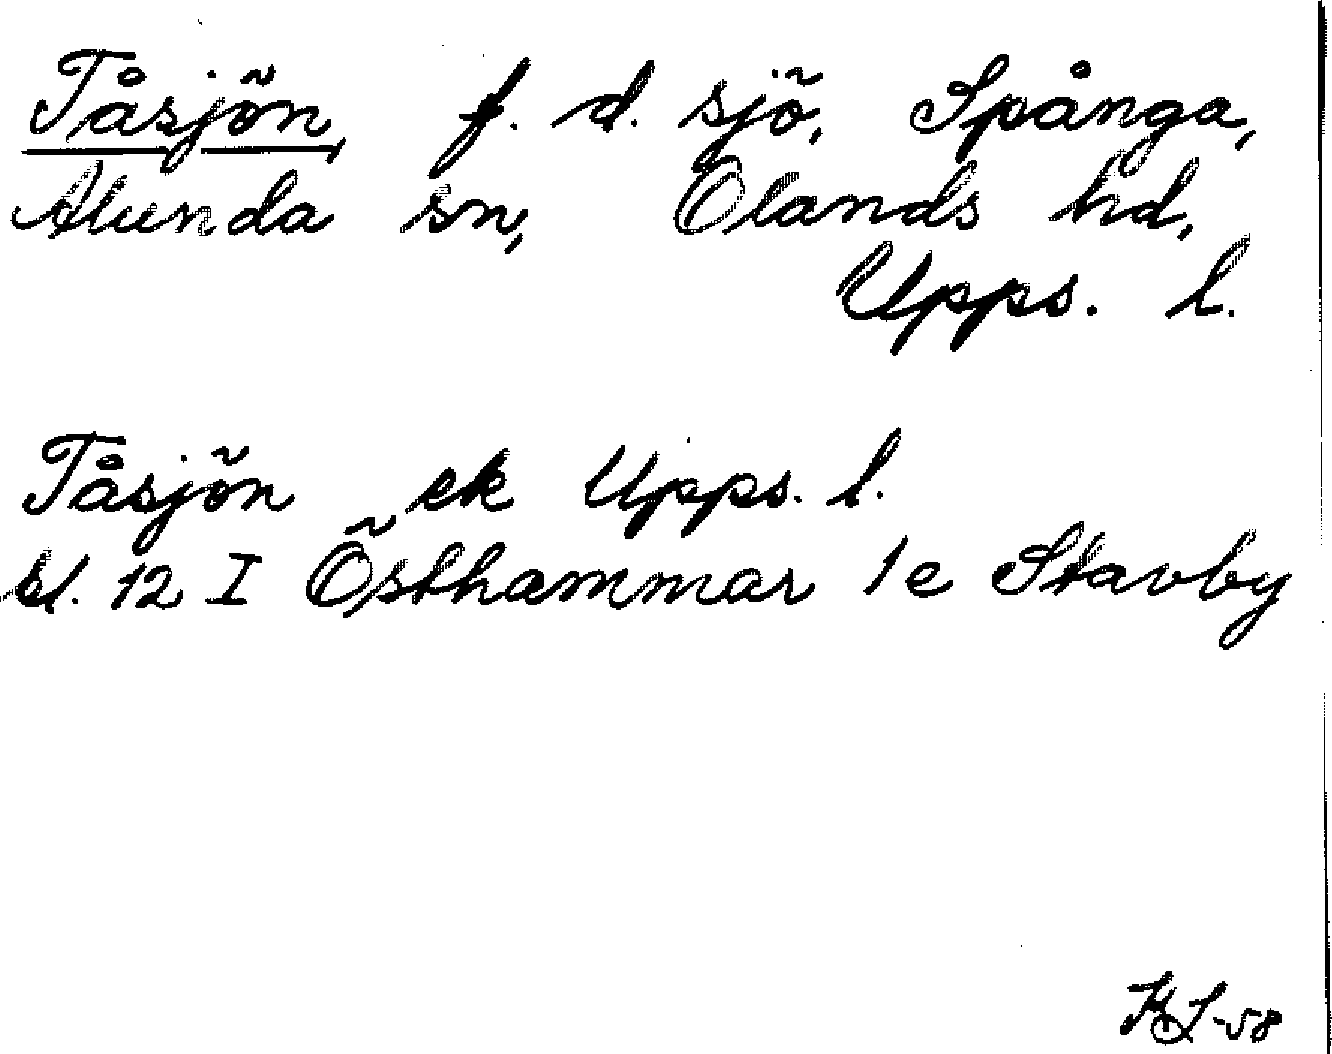 Tåsjön, f. d. sjö, Spånga,
Alunda sn, Olands hd,
Upps. l.
Tåsjön ek Upps. l.
bl. 12 I Östhammar 1e Stavby